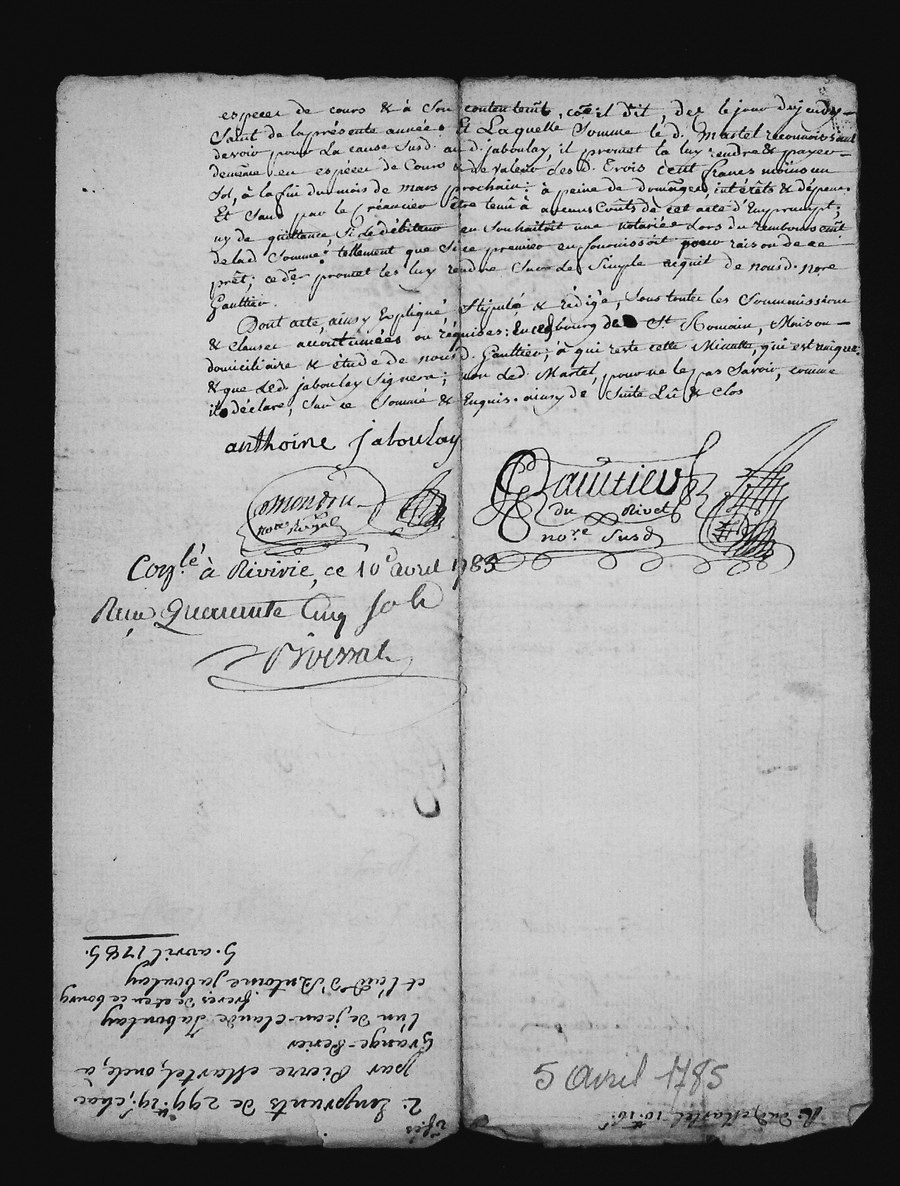 especes de cours & à Son contentemt, co͞e il dit, dez le jour du jeudy
Saint de la présente année. Et Laquelle Somme le d. Martel reconnoissant
devoir pour La cause Susd. au d. jaboulay, il promet la luy rendre & payer
demême en especes de Cours & de valeur desd. Trois cent francs moins un
Sol, à la fin du mois de mars prochain: à peine de domages, intérêts & dépens.
Et Sans par le Créancier être tenû à aucuns Coûts de cet acte d'Emprumpt,
ny de quittance, Si le débiteur en Souhaitoit une notariée Lors du remboursemt
de lad. Somme: tellement que Si ce premier en fournissoit pour raison de ce
prêt; ce der promet les luy rendre Sur le Simple acquit de nousd. nore
Gaultier.
Dont acte, ainsy Expliqué, Stipulé & rédigé, Sous toutes les Soummissions
& clauses accoutumées ou réquises: En ced. bourg de St. Romain, Maison
domiciliaire & étude de nousd. Gaultier; à qui reste cette Minutte, qui est unique
& que led. Jaboulay Signera; non led. Martel, pour ne le pas Savoir, comme
il déclare, Sur ce Sommé & Enquis. ainsy de Suite Lû & clos
anthoine jaboulay
Gaultier
du Rivet
nore. Susd
notre. Royal
Conlé. à Riverie, ce 10e avril 1785
Reçu Quarante Cinq Sols
5 avril 1785
2. Emprunts de 299.tt 19.s chac
par Pierre Martel, oncle, à
Grange-
L'un de jean-Claude Jaboulay
et l'aud. d'Antoine jaboulay
frères de et en ce bourg
5. avril 1785.